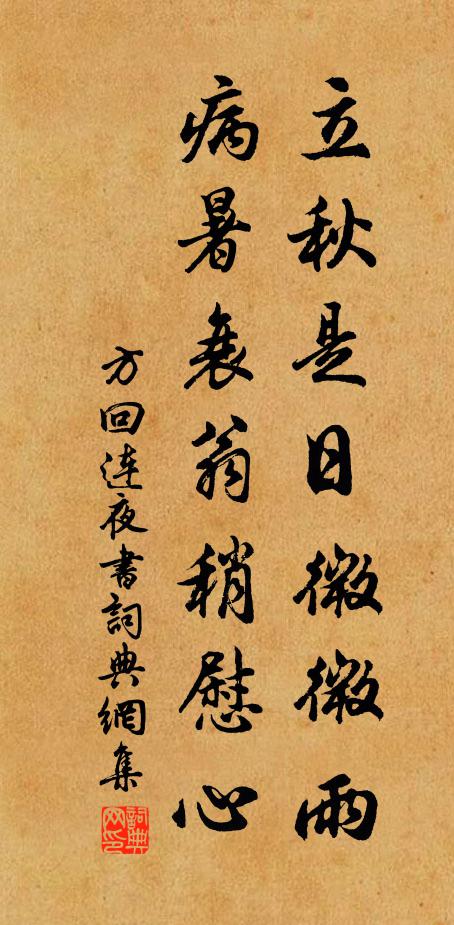 立秋是日微微雨
病暑衰翁稍慰心
方回連夜書詞典網集
詞典网印